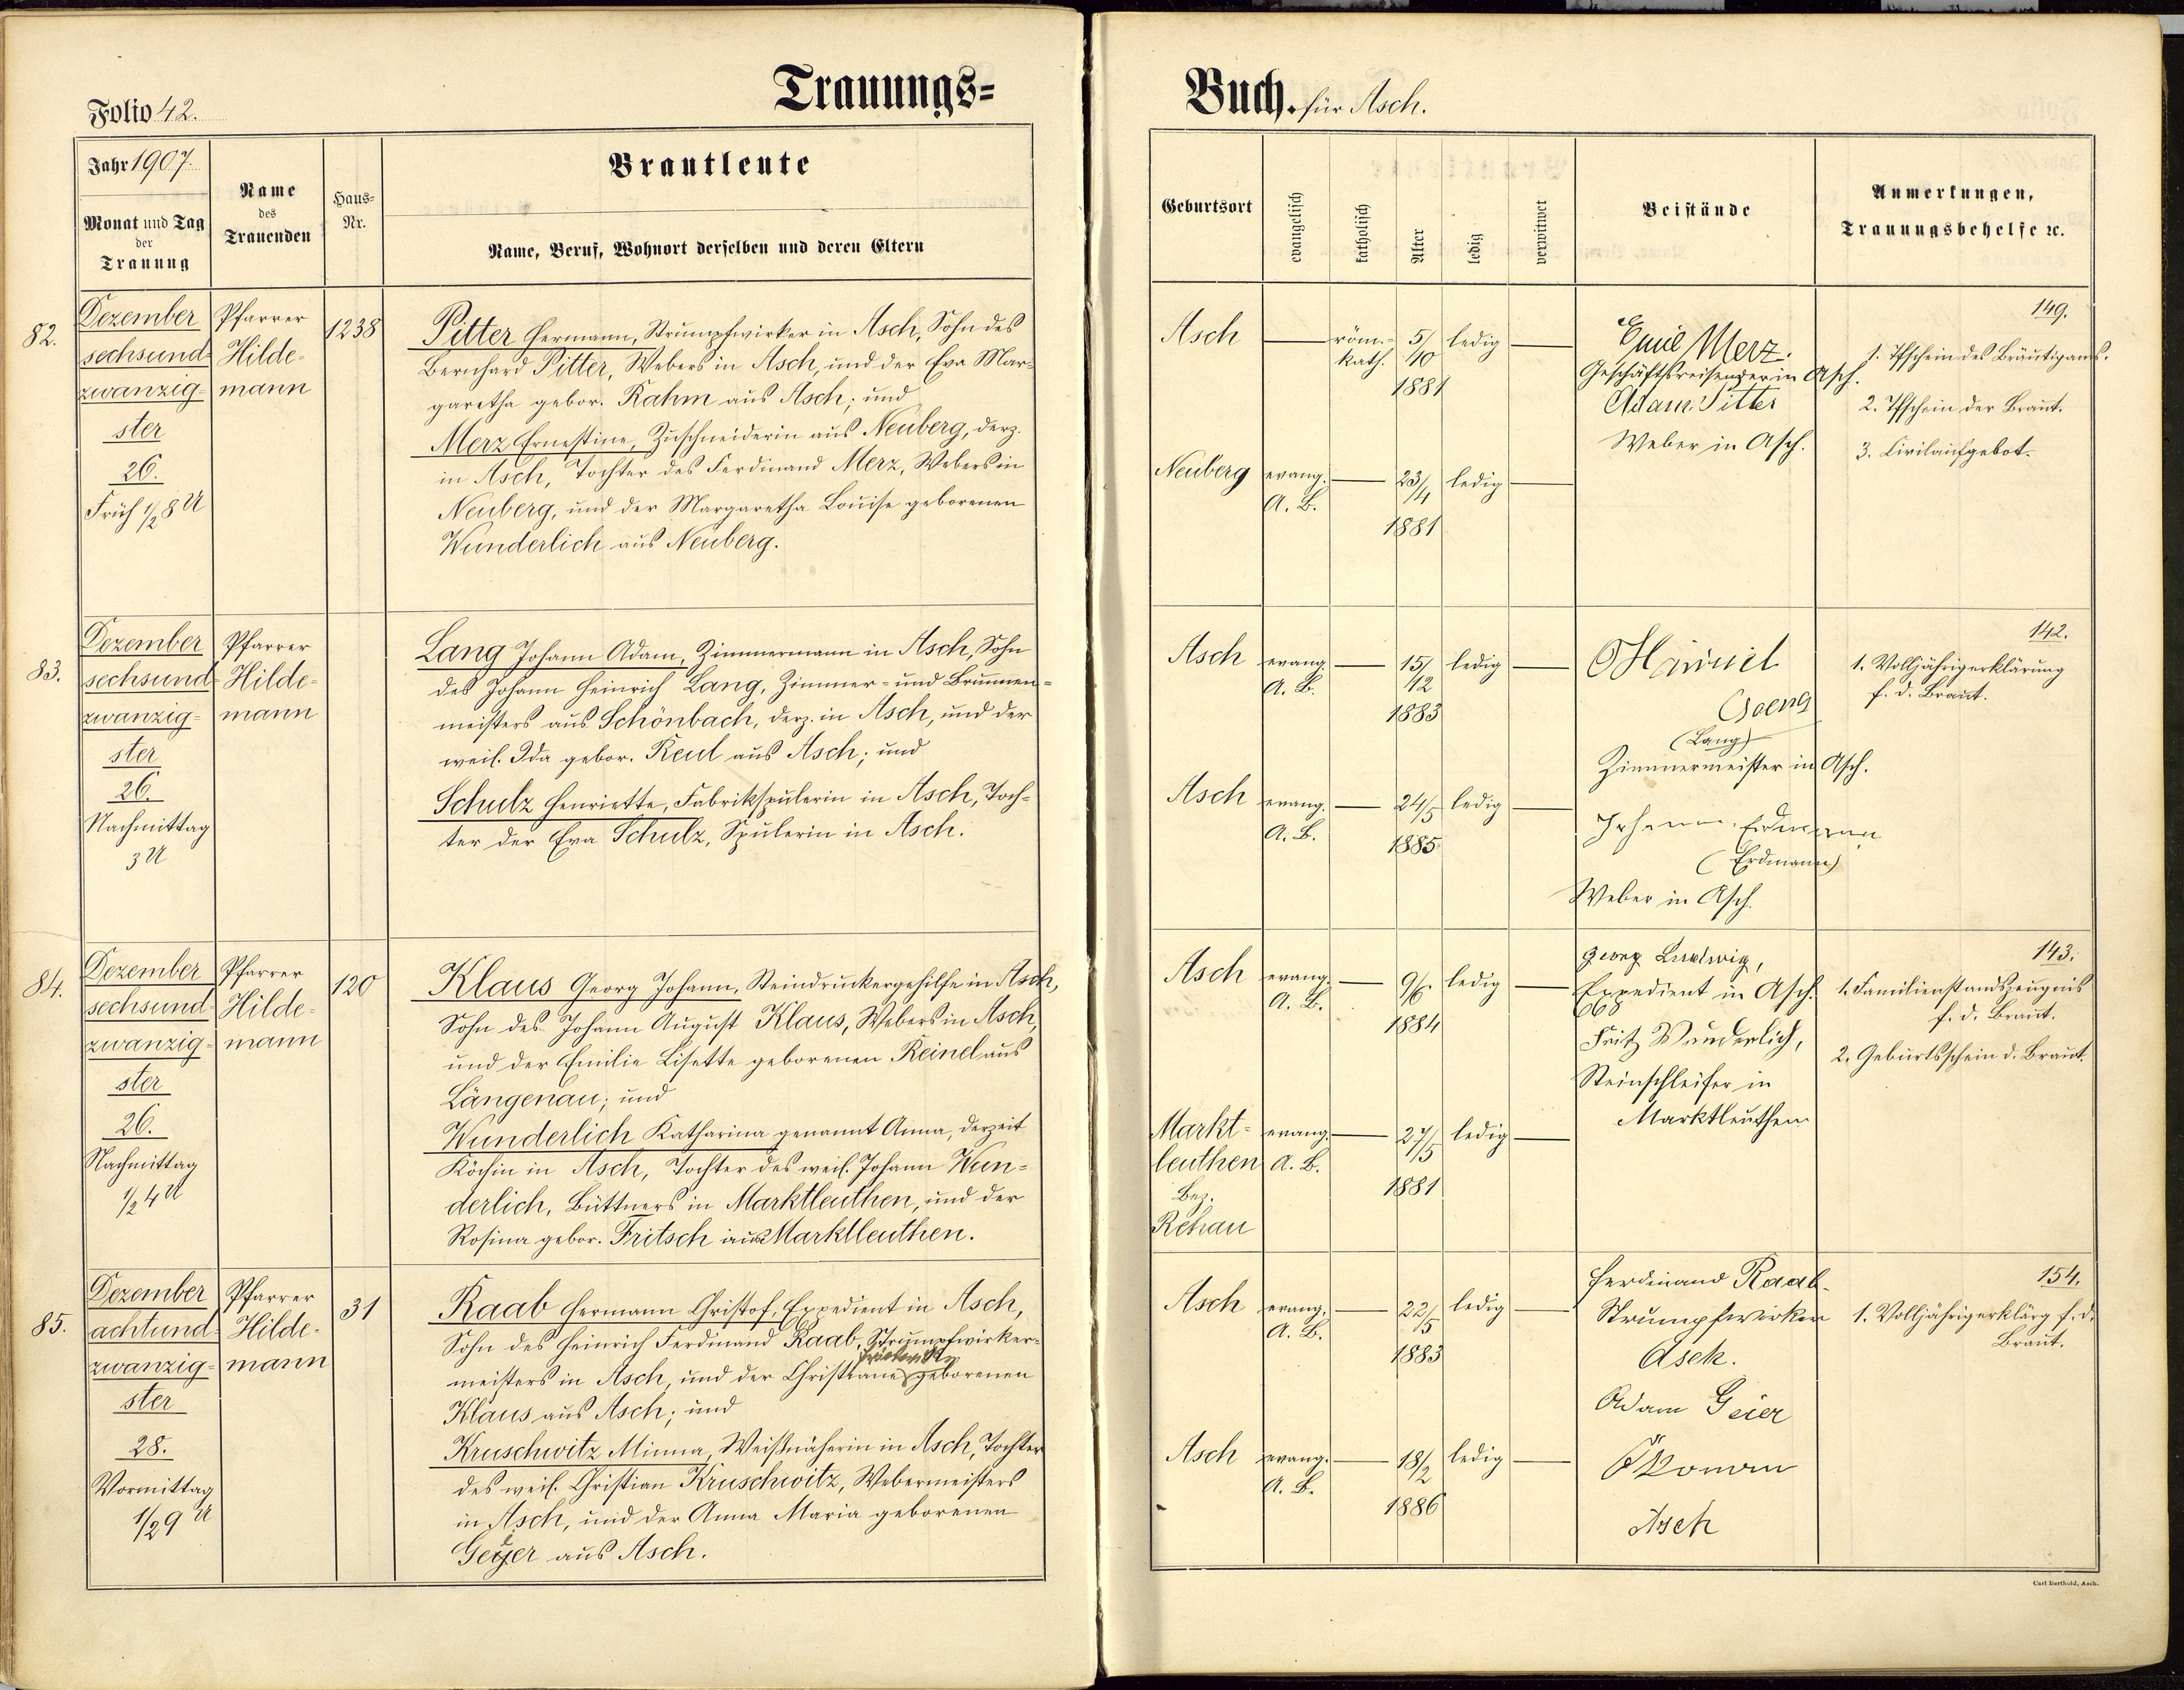 Trauungs=
Buch. für Asch.
Folio 42.
Jahr 1907.
Monat und Tag
der
Trauung
Name
des
Trauenden
Haus-
Nr.
Brautleute
Name, Beruf, Wohnort derselben und deren Eltern
Geburtsort
evangelisch
katholisch
Alter
ledig
verwitwet
Beistände
Anmerkungen,
Trauungsbehelfe ꝛc.
82.
Dezember
sechsund-
zwanzig-
ster
26.
Früh 1/2 8 U
Pfarrer
Hilde-
mann
1238
Pitter Hermann, Strumpfwirker in Asch, Sohn des
Bernhard Pitter, Webers in Asch, und der Eva Mar-
garetha gebor. Rahm aus Asch; und
Merz Ernestine, Zuschneiderin aus Neuberg, derz.
in Asch, Tochter des Ferdinand Merz, Webers in
Neuberg, und der Margaretha Louise geborenen
Wunderlich aus Neuberg.
Asch
röm.-
kath.
5/
10
1881
ledig
Neuberg
evang.
A. B.
23/
4
1881
ledig
Emil Merz.
Geschäftsreisender in Asch.
Adam Pitter
Weber in Asch.
149.
1. Tfschein des Bräutigams.
2. Tfschein der Braut.
3. Civilaufgebot.
83.
Dezember
sechsund-
zwanzig-
ster
26.
Nachmittag
3 U
Pfarrer
Hilde-
mann
Lang Johann Adam, Zimmermann in Asch, Sohn
des Johann Heinrich Lang, Zimmer- und Brunnen-
meisters aus Schönbach, derz. in Asch, und der
weil. Ida gebor. Reul aus Asch; und
Schulz Henriette, Fabrikspulerin in Asch, Toch-
ter der Eva Schulz, Spulerin in Asch.
Asch
evang.
A. B.
15/
12
1883
ledig
Asch
evang.
A. B.
24/5
1885
ledig
(Lang)
Zimmermeister in Asch.
Johann Erdmann
(Erdmann)
Weber in Asch.
142.
1. Volljährigerklärung
f. d. Braut.
84.
Dezember
sechsund-
zwanzig-
ster
26.
Nachmittag
1/2 4 U
Pfarrer
Hilde-
mann
120
Klaus Georg Johann, Steindruckergehilfe in Asch,
Sohn des Johann August Klaus, Webers in Asch,
und der Emilie Lisette geborenen Reinel aus
Längenau; und
Wunderlich Katharina genannt Anna, derzeit
Köchin in Asch, Tochter des weil. Johann Wun-
derlich, Büttners in Marktleuthen, und der
Rosina gebor. Fritsch aus Marktleuthen.
Asch
evang.
A. B.
9/6
1884
ledig
Markt-
leuthen
Bez.
Rehau
evang.
A. B.
27/
5
1881
ledig
Georg Ludwig,
Expedient in Asch.
668
Fritz Wunderlich,
Steinschleifer in
Marktleuthen
143.
1. Familienstandszeugnis
f. d. Braut.
2. Geburtsschein d. Braut.
85.
Dezember
achtund-
zwanzig-
ster
28.
Vormittag
1/2 9 U
Pfarrer
Hilde-
mann
31
Raab Hermann Christof, Expedient in Asch,
Sohn des Heinrich Ferdinand Raab, Strumpfwirker-
meisters in Asch, und der Christiane geborenen
Klaus aus Asch; und
Kruschwitz Minna, Weißnäherin in Asch, Tochter
des weil. Christian Kruschwitz, Webermeisters
in Asch, und der Anna Maria geborenen
Geyer aus Asch.
Asch
evang.
A. B.
22/
5
1883
ledig
Asch
evang.
A. B.
18/
2
1886
ledig
Ferdinand Raab.
Strumpfwirker
Asch.
Adam Geier
Ökonom
Asch
154.
1. Volljährigerklärg f. d.
Braut.
Carl Berthold, Asch.